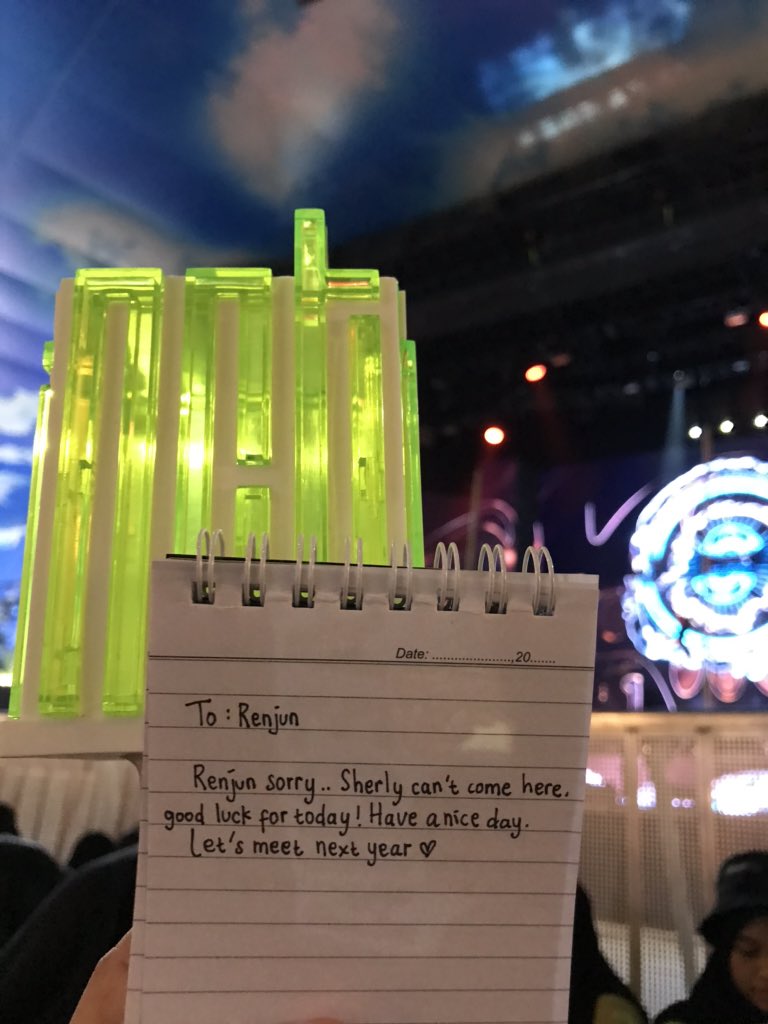 Date: ......................,20.......
To : Renjun
Renjun sorry.. Sherly can't come here.
good luck for today! Have a nice day.
Let's meet next year ♡